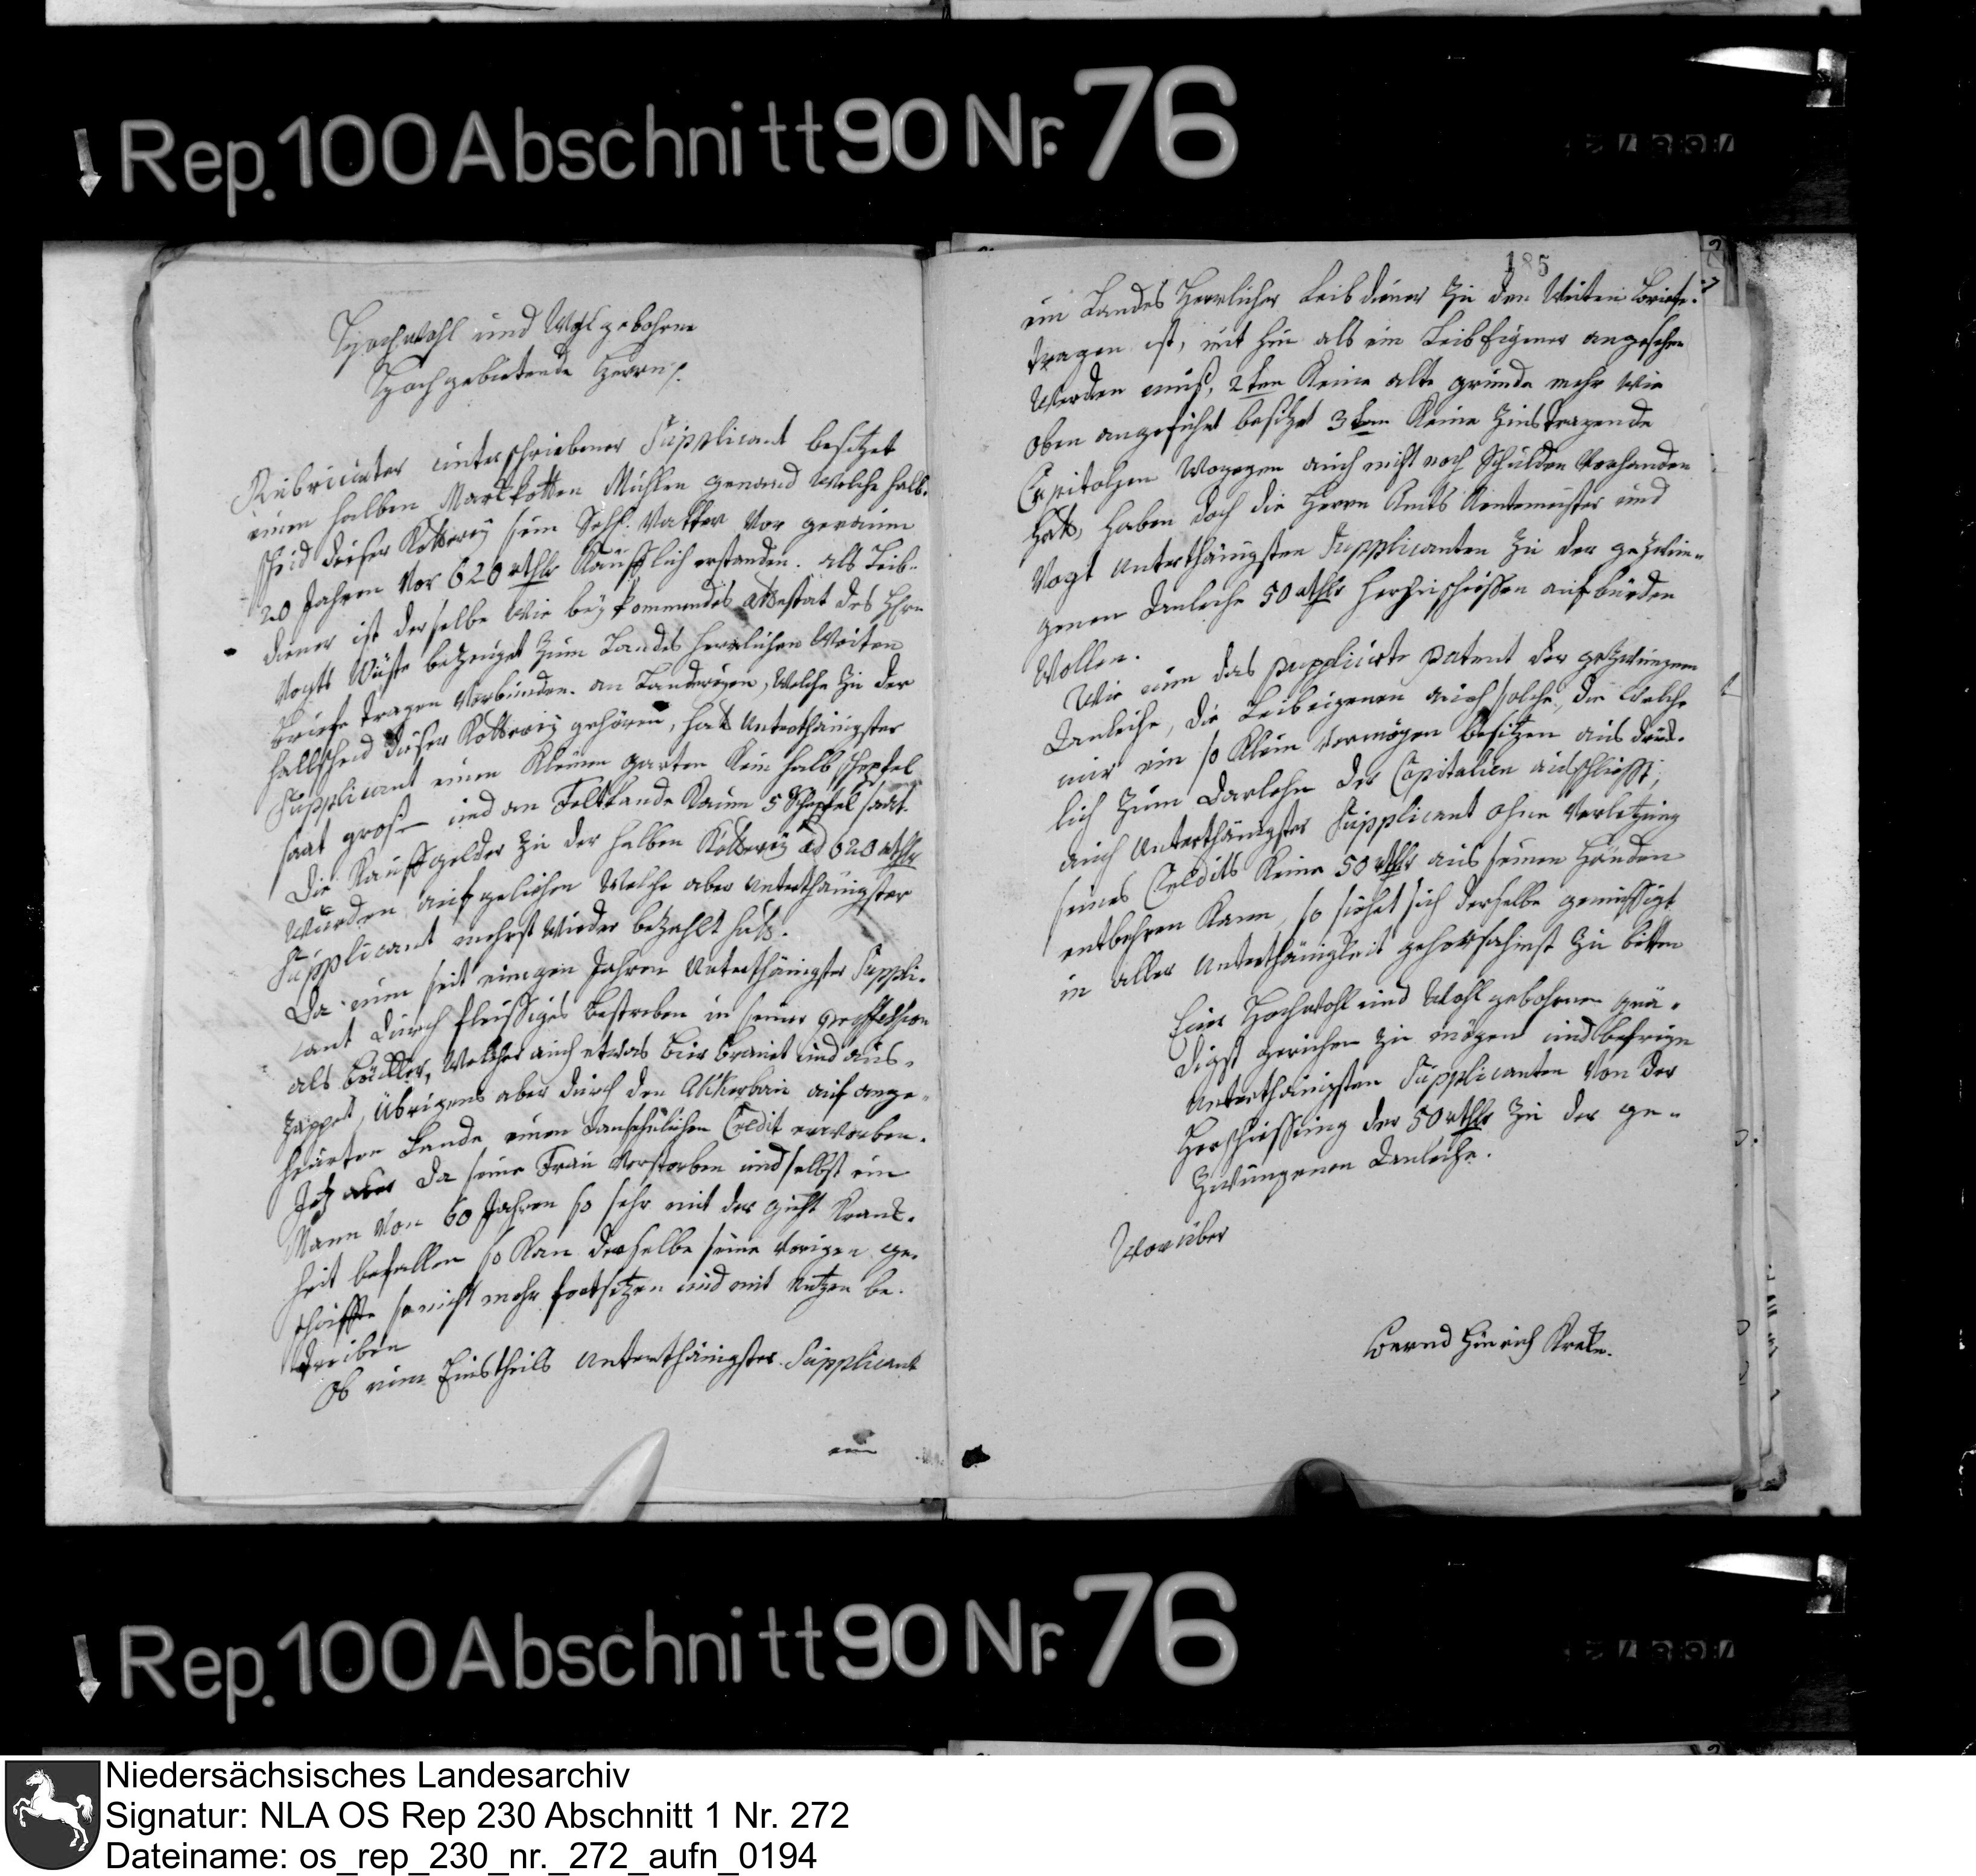 Rep. 100 Abschnitt 90 Nr. 76
Hochwohl und Wohlgebohrne
Hochgebietende Herrn p.
Rubricirter unterschriebener Supplicant besitzet
einen halben Markkotten Mühlen genand welche halb-
scheid dieser Kötterey sein Sehl. Vatter vor geraumen
20 Jahren vor 620 rthlr Käufflich erstanden. als Leib-
diener ist derselbe wie bey kommendes attestat des Hrn
Vogts Wüste bezeuget zum Landes herrlichen Weiten
Briefe tragen verbunden. an Länderyen, welche zu der
hallbscheid dieser Kötterey gehören, hat unterthänigster
Supplicant einen Kleinen garten Kein halb schepfel
saat groß und an Feltlande Kaum 5 Schepfel saat.
Die Kauffgelder zu der halben Kötterey ad 620 rthlr
wurden aufgeliehen welche aber unterthänigster
Supplicant mehrst wieder bezahlt hat.
Da nun seit einigen Jahren unterthänigster Suppli-
cant durch fleissiges bestreben in seiner proffession
als böttker, welcher auch etwas bier brauet und aus-
zappet, übrigens aber durch den Akkerbau auf ange-
heurten Lande einen ansehnlichen Credit erworben.
Jetz aber da seine Frau verstorben und selbst ein
Mann von 60 Jahren so sehr mit der gicht Krank-
heit befallen so Kan derselbe seine vorigen ge-
schäffte so nicht mehr fortsetzen und mit Nutzen be-
treiben
Ob nun Einstheils unterthänigster Supplicant
ein
185
ein Landes Herrlicher Leibdiener zu den Weiten Briefe-
tragen ist, mit hin als ein Leib Eigener angesehen
werden muß, 2ten Keine alte gründe mehr wie
oben angeführt besitzet 3ten Keine Zinstragende
Capitalien wogegen auch nicht noch Schulden vorhanden
hat, haben doch die Herrn Amts Rentemeister und
Vogt unterthänigsten Supplicanten zu der gezwun-
genen Anleihe 50 rthlr herzuschießen aufbürden
wollen.
Wie nun das supplicirte patent der gezwungenen
Anleihe, die Leibeigenen auch solche, die welche
nur ein so Klein vermögen besitzen aus drük-
lich zum Darlehn der Capitalien ausschliesst;
auch unterthänigster Supplicant ohne Verletzung
seines Credits Keine 50 rthlr aus seinen Händen
entbehren Kann, so siehet sich derselbe gemüssigt
in aller unterthänigkeit gehorsahmst zu bitten
Euer Hochwohl und Wohlgebohrnen gnä-
digst geruhen zu mögen und befreyen
unterthänigsten Supplicanten von der
Herschiessung der 50 rthlr zu der ge-
zwungenen Anleihe.
Worüber
Bernd Hinrich Krete.
Rep. 100 Abschnitt 90 Nr. 76
Niedersächsisches Landesarchiv
Signatur: NLA OS Rep 230 Abschnitt 1 Nr. 272
Dateiname: os_rep_230_nr._272_aufn_0194